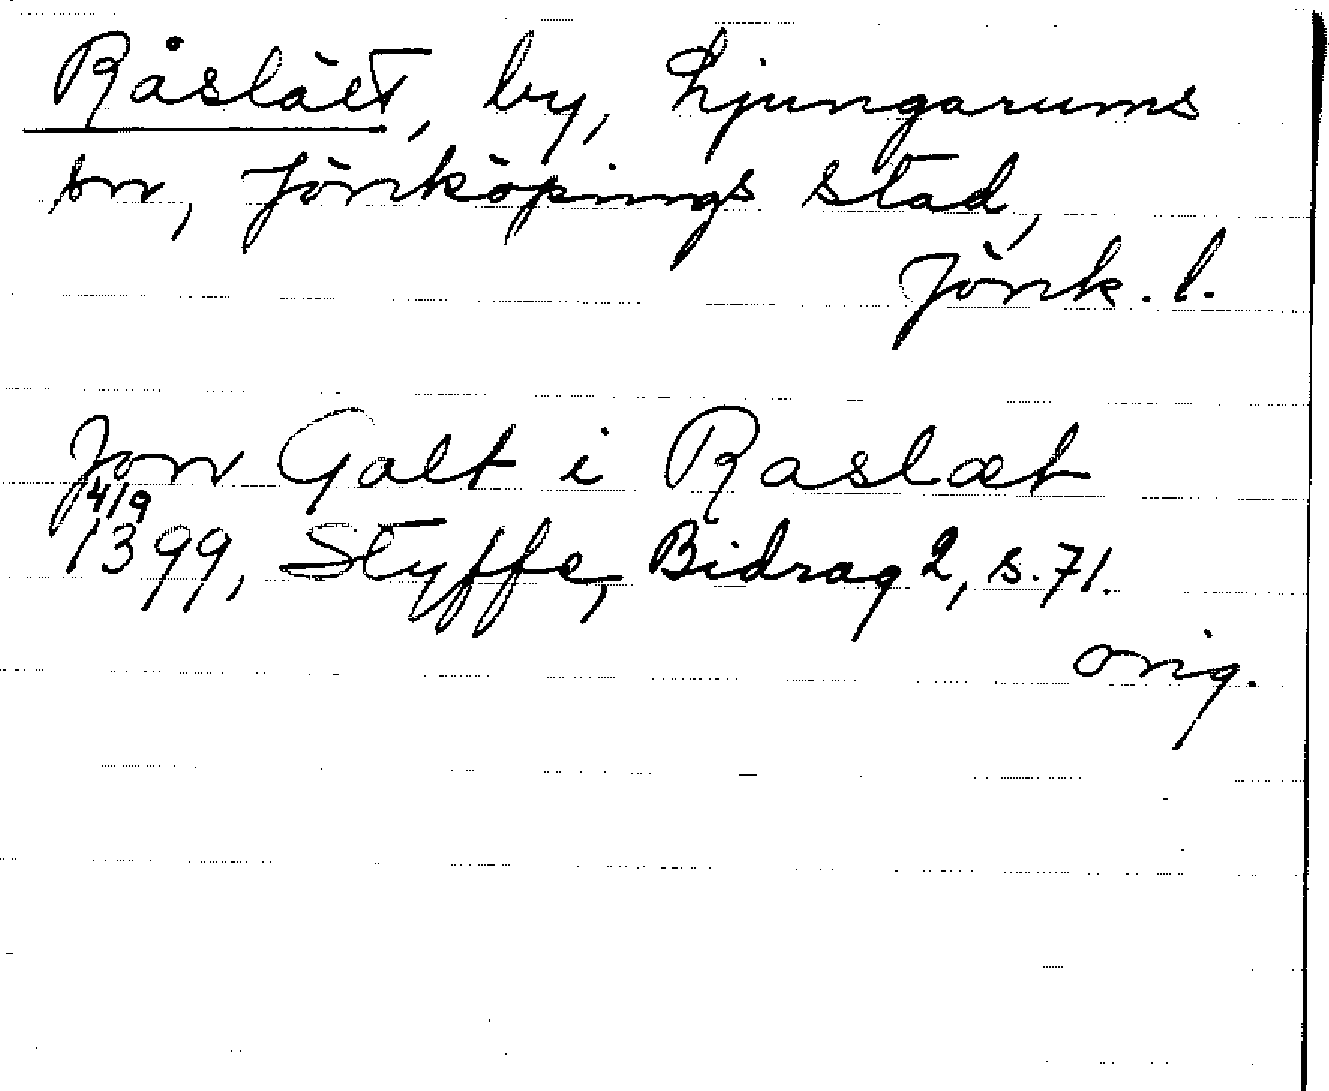 Råslätt, by, Ljungarums
sn, Jönköpings stad,
Jönk. l.
Jon Galt i Raslæt
4/9
1399, Styffe, Bidrag 2, s. 71.
orig.